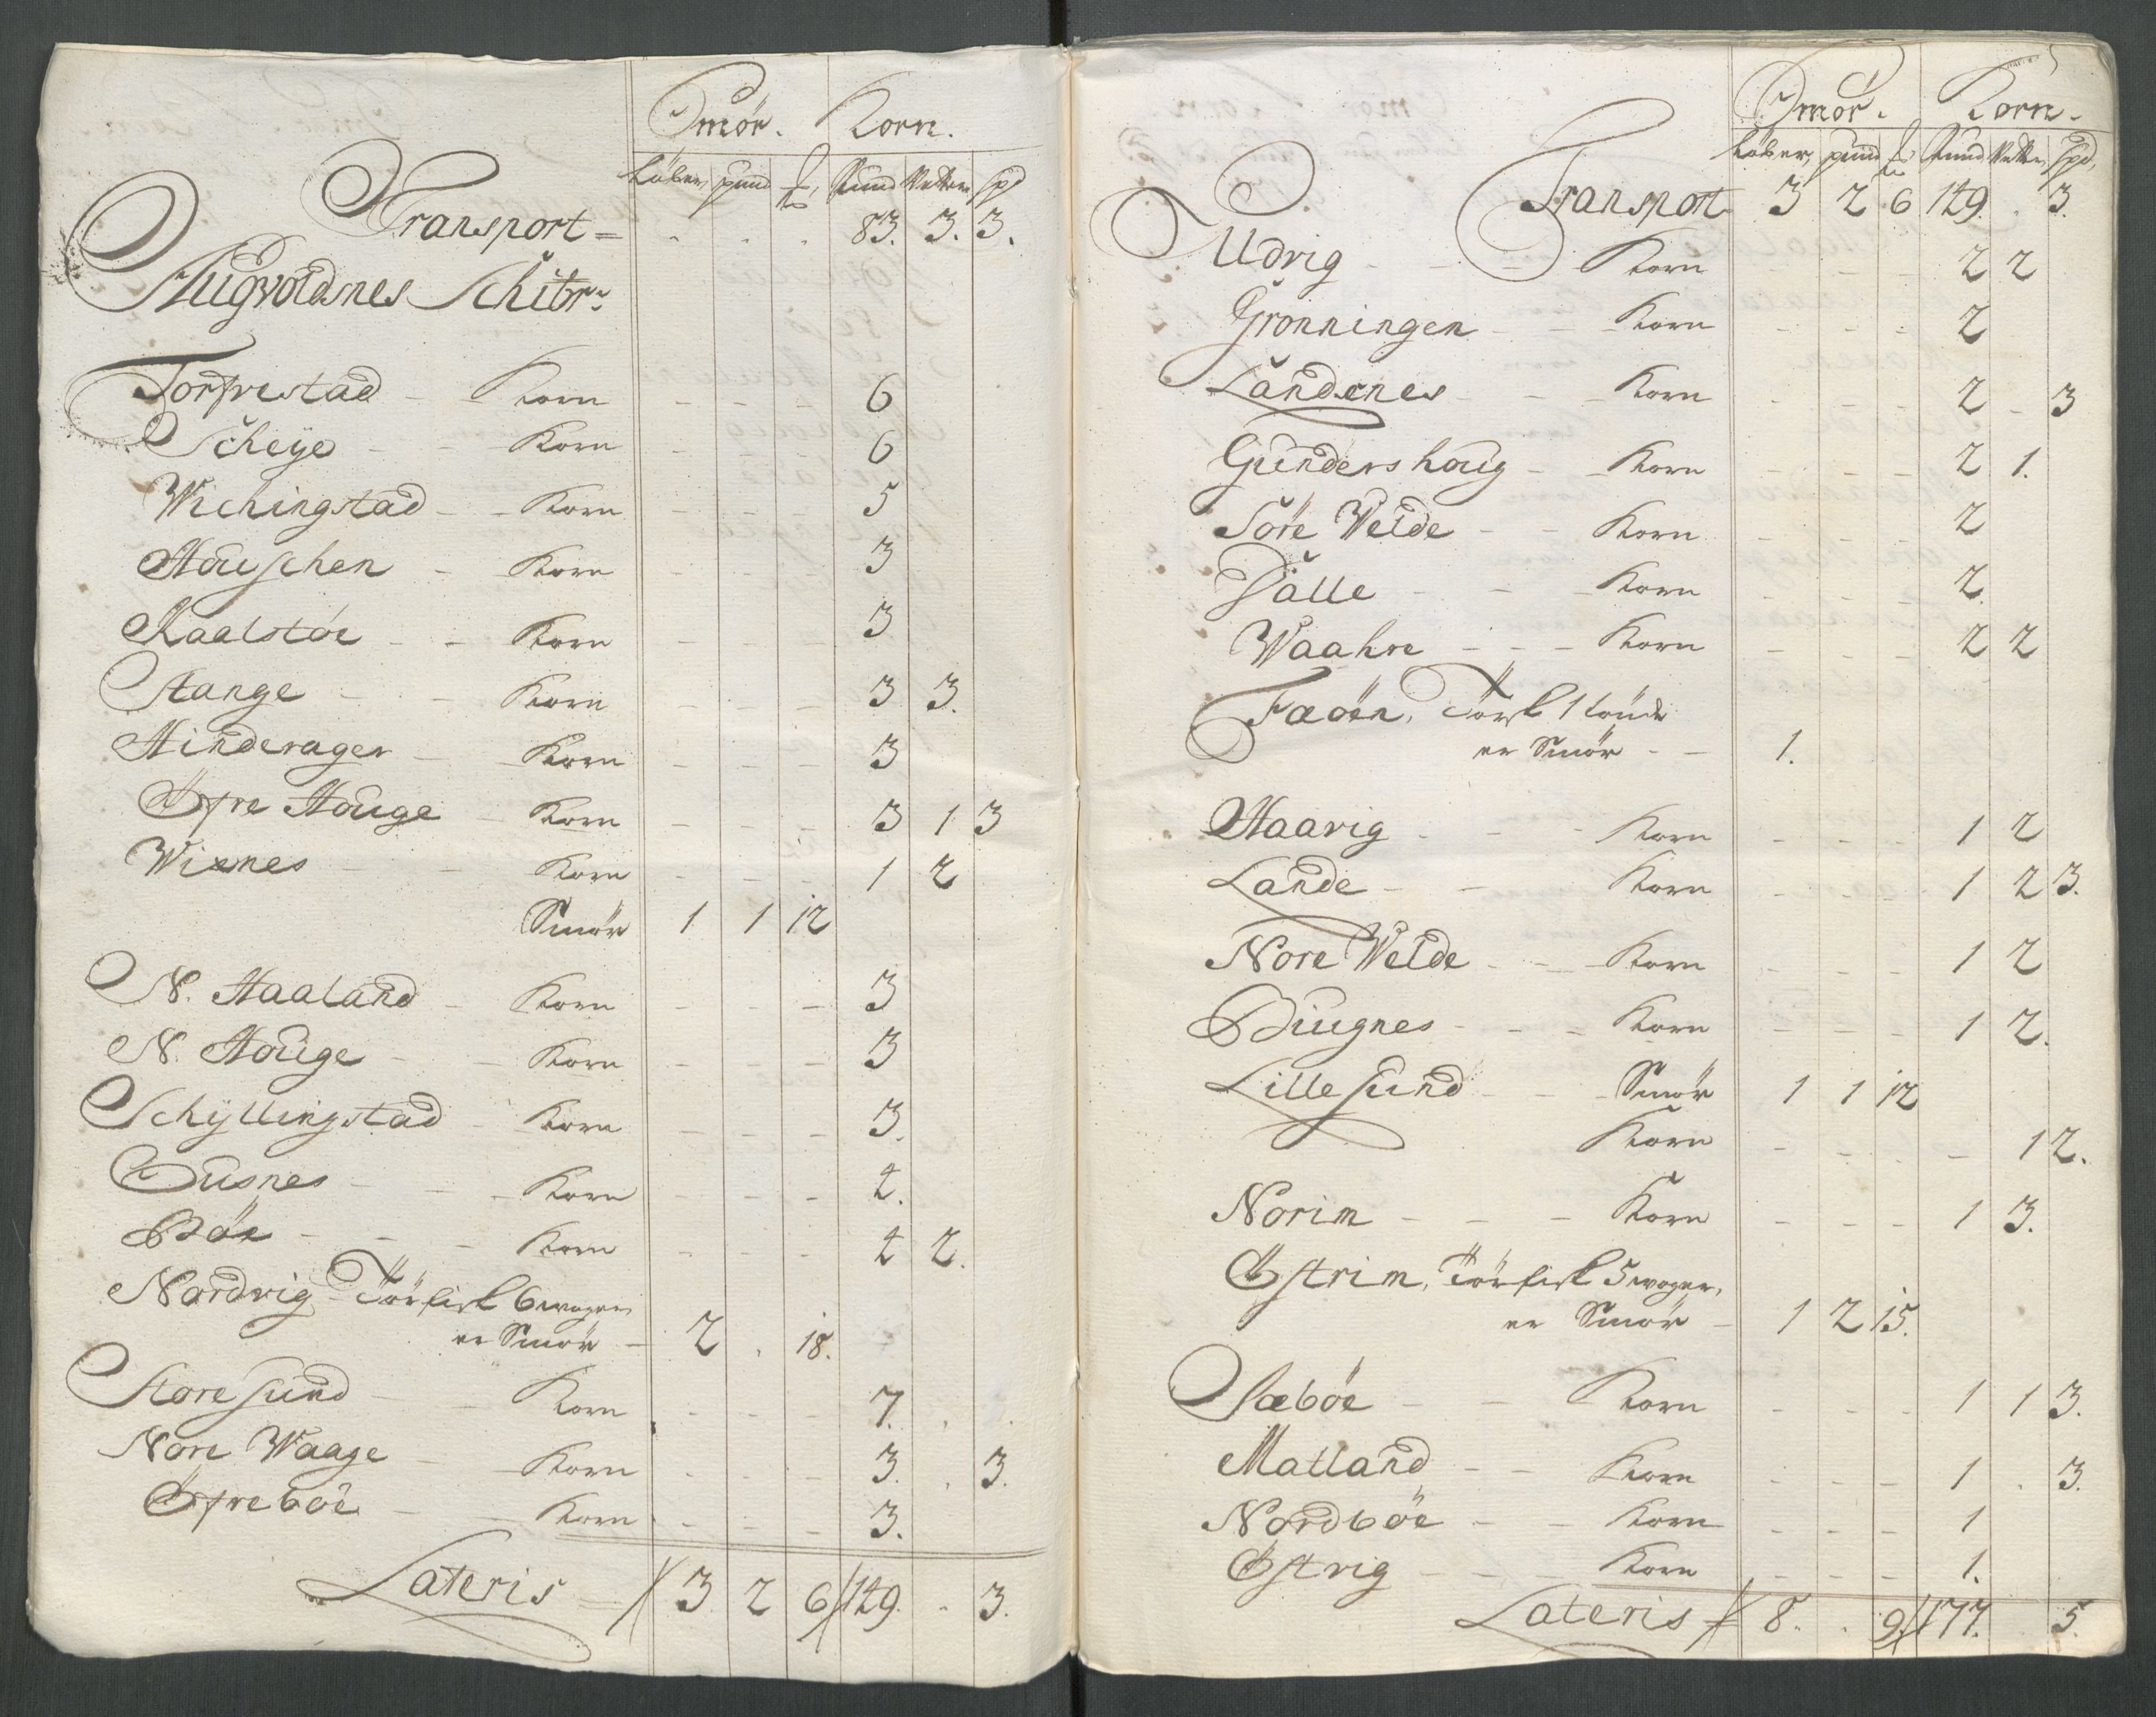 Smör. Korn.
Löber, pund ℔, Pund Vetter Spd
Transport = 83. 3. 3.
Augvoldnes Schibr:
Torfvestad - Korn 6
Scheye - Korn 6
Wichingstad - Korn 5
Houschen - Korn 3
Kaalstöe - Korn 3
Stange - Korn 3 3.
Hinderager - Korn 3
Öfre Houge - Korn 3 1 3
Wixnes - Korn 1 2
Smör 1 1 12
N. Haaland - Korn 3
N. Houge - Korn 3
Schyllingstad - Korn 3.
Busnes - Korn 4.
Böe - Korn 4 2.
Nordvig Törfisk 6 woger,
er Smör - 2 . 18.
Storesund - Korn 7.
Nore Waage - Korn 3. . 3.
Öfreböe - Korn 3.
Lateris = 3 2 6 149. . 3.
Smör. Korn.
Löber, pund ℔ Pund Vetter, Spd,
Transport 3 2 6 149. . 3.
Udvig - Korn 2 2
Grönningen - Korn 2
Landsnes - Korn 2 - 3
Gundershoug - Korn 2 1.
Söre Velde - Korn 2
Dalle - Korn 2.
Waahre - Korn 2 2
Fæöen, Törsk 1 tönde
er Smör - 1.
Haavig - Korn 1 2
Lande - Korn 1 2 3.
Nore Velde - Korn 1 2
Diugnes - Korn 1 2.
Lillesund - Smör 1 1 12
Korn 1 2.
Norim - Korn 1 3.
Östrim, Törfisk 5 woger,
er Smör - 1 2 15.
Sæböe - Korn 1 1 3.
Matland - Korn 1 . 3.
Nordböe - Korn 1
Östvig - Korn 1.
Lateris 8. . 9. 177. 5.